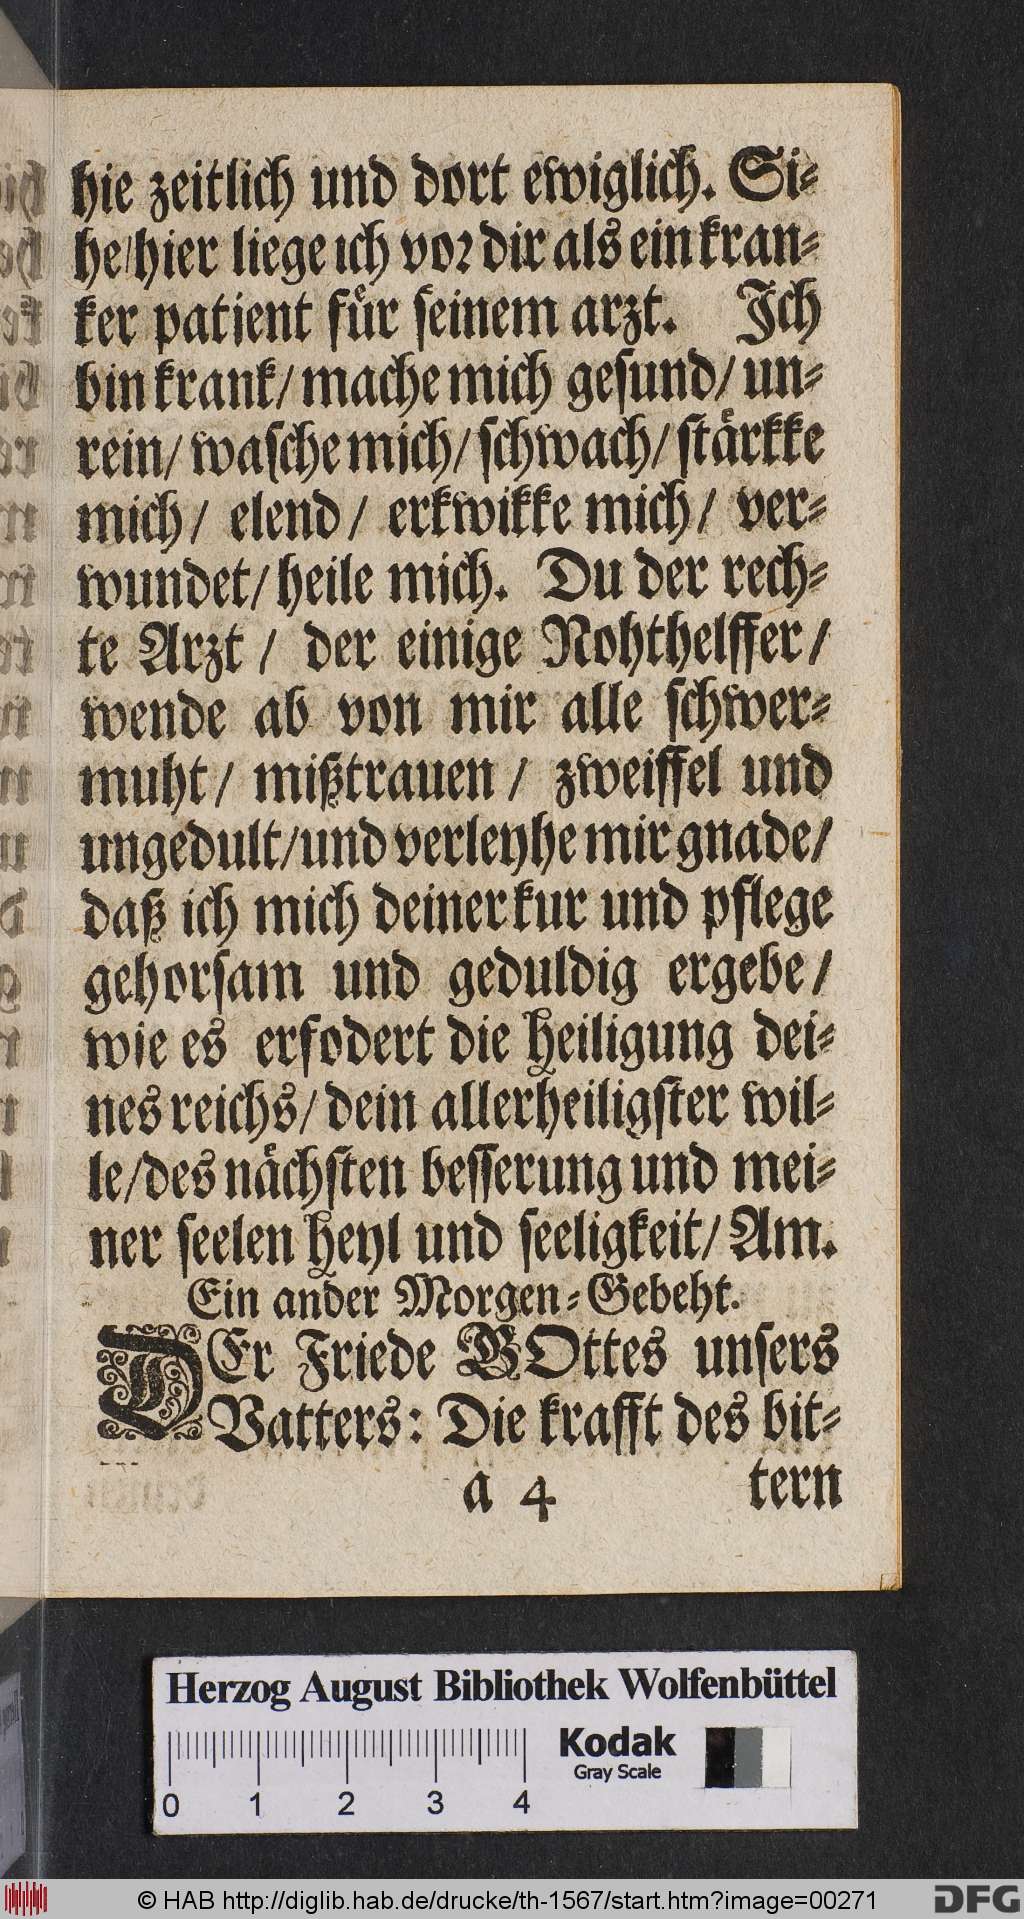 hie zeitlich und dort ewiglich. Si⸗
he/hier liege ich vor dir als ein kran⸗
ker patient fuͤr seinem arzt. Ich
bin krank/ mache mich gesund/ un⸗
rein/ wasche mich/ schwach/ staͤrkke
mich/ elend/ erkwikke mich/ ver⸗
wundet/ heile mich. Du der rech⸗
te Arzt / der einige Nohthelffer/
wende ab von mir alle schwer⸗
muht/ mißtrauen / zweiffel und
ungedult/und verleyhe mir gnade/
daß ich mich deiner kur und pflege
gehorsam und geduldig ergebe/
wie es erfodert die Heiligung dei⸗
nes reichs/ dein allerheiligster wil⸗
le/des naͤchsten besserung und mei⸗
ner seelen Heyl und seeligkeit/ Am.
Ein ander Morgen⸗Gebeht.
DEr Friede GOttes unsers
Vatters: Die krafft des bit⸗
a 4 tern
Herzog August Bibliothek Wolfenbüttel
Kodak
Gray Scale
0 1 2 3 4
© HAB http://diglib.hab.de/drucke/th-1567/start.htm?image=00271
DFG